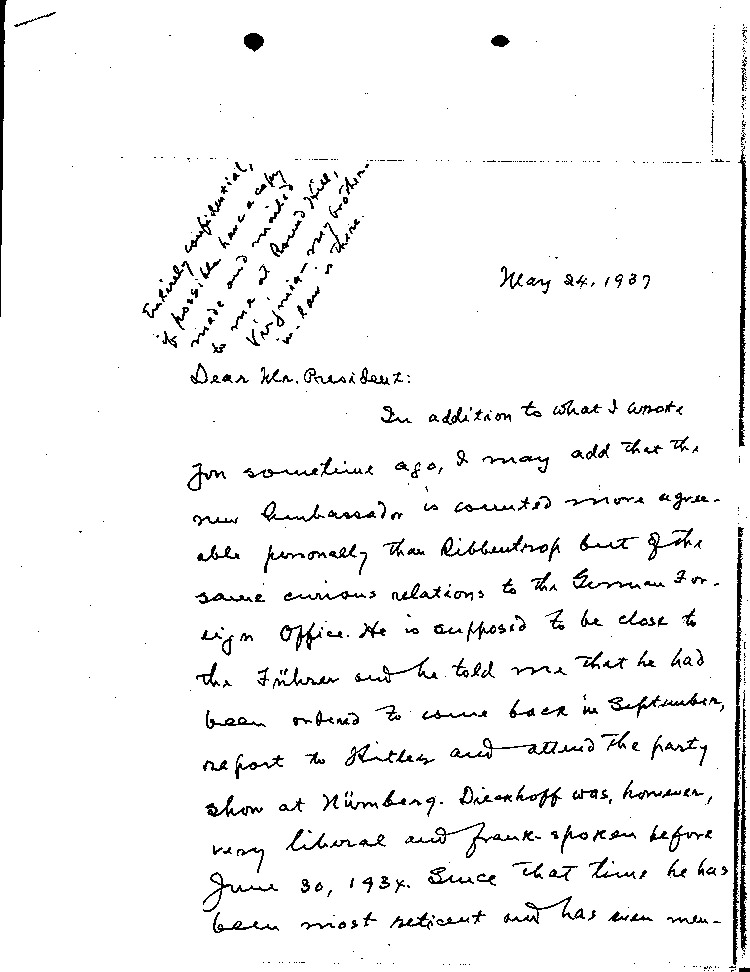 Entirely confidential,
if possible have a copy
made and mailed
to me at Round Hill,
Virginia—my brother-
in-law is there.
May 24, 1937
Dear Mr. President:
In addition to what I wrote
you sometime ago, I may add that the
new Ambassador is counted more agree-
able personally than Ribbentrop but of the
same curious relations to the German For-
eign Office. He is supposed to be close to
the Führer and he told me that he had
been ordered to come back in September,
report to Hitler and attend the party
show at Nürnberg. Dieckhoff was, however,
very liberal and frank-spoken before
June 30, 1934. Since that time he has
been most reticent and has even men-